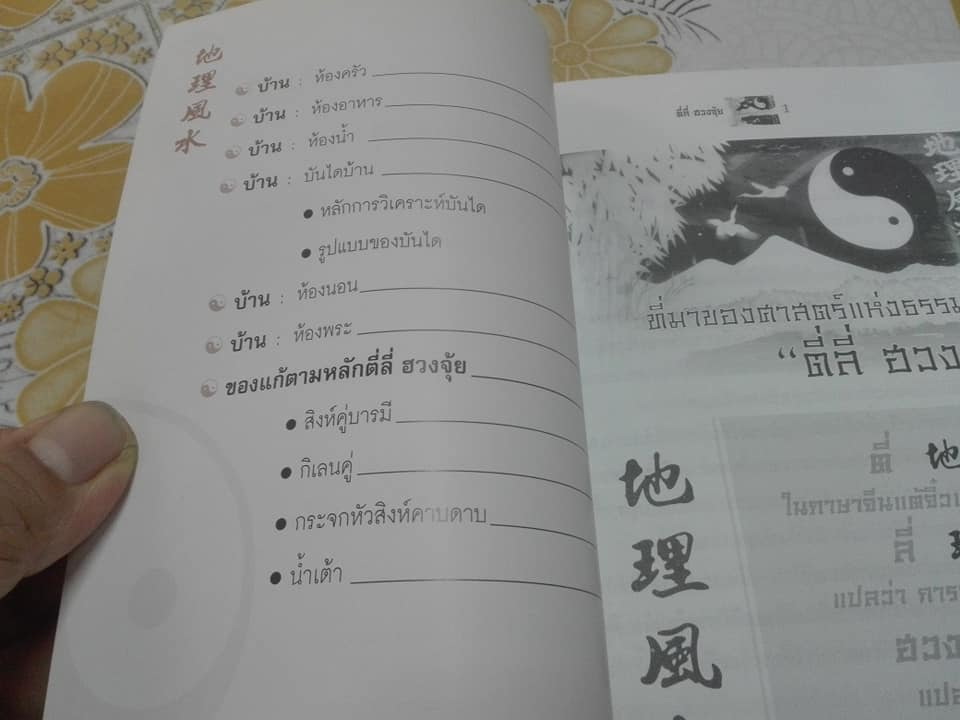 地理風水
บ้าน : ห้องครัว
บ้าน : ห้องอาหาร
บ้าน : ห้องน้ำ
บ้าน : บันไดบ้าน
• หลักการวิเคราะห์บันได
• รูปแบบของบันได
บ้าน : ห้องนอน
บ้าน : ห้องพระ
ของแก้ตามหลักตี่ลี่ ฮวงจุ้ย
• สิงห์คู่บารมี
• กิเลนคู่
• กระจกหัวสิงห์คาบดาบ
• น้ำเต้า
ตี่ลี่ ฮวงจุ้ย 1
地理
ที่มาของศาสตร์แห่งธรรม
“ตี่ลี่ ฮวง
地理風
ตี่ 地
ในภาษาจีนแต้จิ๋ว
ลี่
แปลว่า การ
ฮวง
แปล